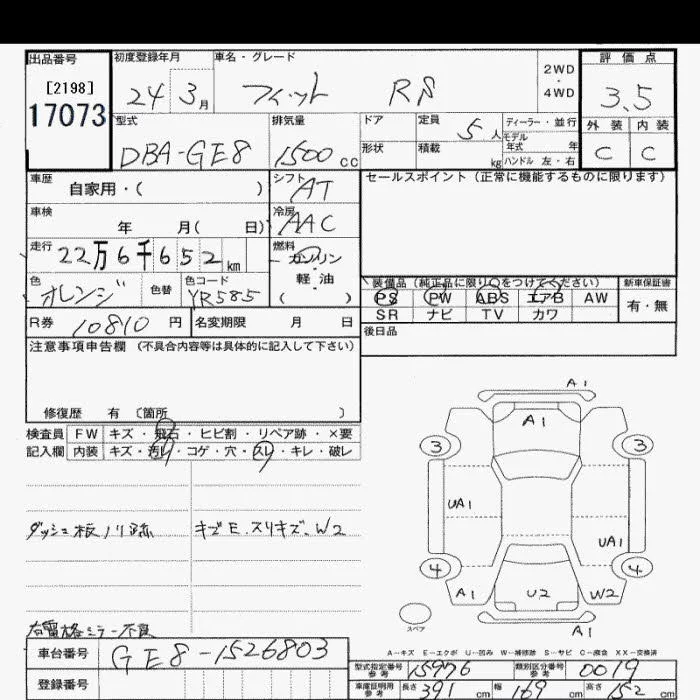 出品番号 初度登録年月 車名・グレード 2WD・4WD 評価点
[2198] 24 3月 フィット RS 3.5
17073
型式 排気量 ドア 定員 5人 ディーラー・並行 外装 内装
DBA-GE8 1500cc 形状 積載 kg モデル年式 年 ハンドル 左・右 C C
車歴 自家用・( ) シフト AT セールスポイント (正常に機能するものに限ります)
車検 年 月( 日) 冷房 AAC
走行 22万6千652km 燃料 ガソリン 軽油 ( )
色 オレンジ 色替 色コード YR585 装備品 (純正品に限り○をつけてください) 新車保証書
PS PW ABS エアB AW 有・無
SR ナビ TV カワ
R券 10810円 名変期限 月 日 後日品
注意事項申告欄 (不具合内容等は具体的に記入して下さい)
修復歴 有 〔箇所 〕
検査員 FW キズ・飛石・ヒビ割・リペア跡・×要
記入欄 内装 キズ・汚レ・コゲ・穴・スレ・キレ・破レ
ダッシュ板ノリ跡 キズE.スリキズ.W2
右電格ミラー不良
A1
A1
3 3
UA1
UA1
4 4
A1 U2 W2
A1
スペア
A-キズ E-エクボ U-凹み W-補修跡 S-サビ C-腐食 XX-交換済
車台番号 GE8-1526803
型式指定番号 参考 15976 類別区分番号 参考 0019
登録番号
車庫証明用 参考 長さ 391cm 幅 169cm 高さ 152cm